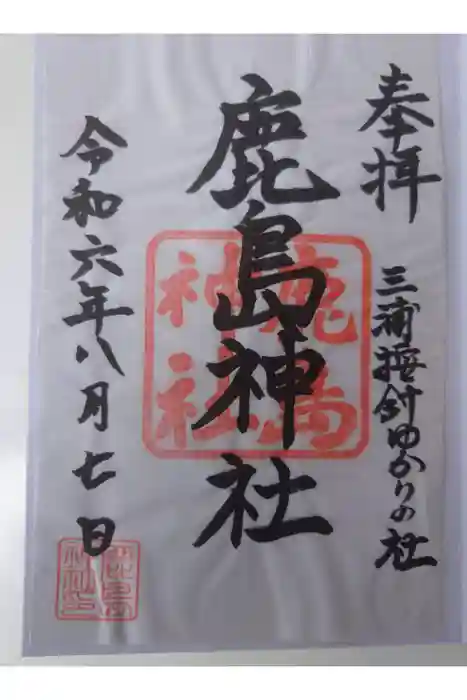 奉拝
三浦按針ゆかりの社
鹿島神社
鹿島
神社
令和六年八月七日